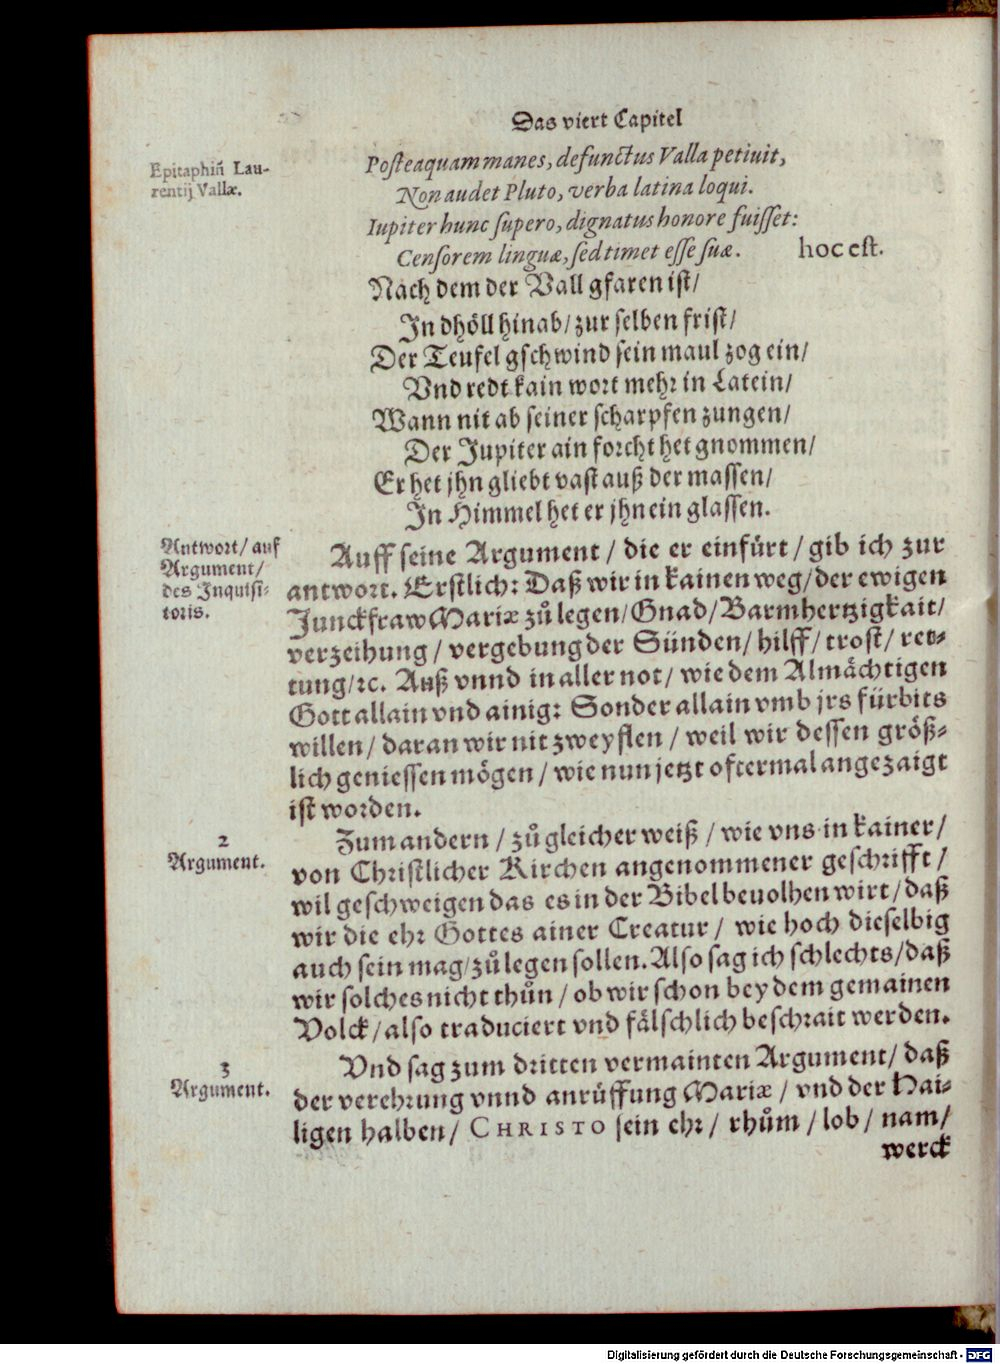 Das viert Capitel
Epitaphiū Lau-
rentij Vallæ.
Posteaquam manes, defunctus Valla petiuit,
Non audet Pluto, verba latina loqui.
Iupiter hunc supero, dignatus honore fuisset:
Censorem linguæ, sed timet esse suæ. hoc est.
Nach dem der Vall gfaren ist/
In dhöll hinab/ zur selben frist/
Der Teufel gschwind sein maul zog ein/
Vnd redt kain wort mehr in Latein/
Wann nit ab seiner scharpfen zungen/
Der Jupiter ain forcht het gnommen/
Er het jhn gliebt vast auß der massen/
In Himmel het er jhn ein glassen.
Antwort/ auf
Argument/
des Inquisi-
toris.
Auff seine Argument / die er einfürt / gib ich zur
antwort. Erstlich: Daß wir in kainen weg/ der ewigen
Junckfraw Mariæ zů legen/ Gnad/ Barmhertzigkait/
verzeihung / vergebung der Sünden/ hilff/ trost/ ret-
tung/ ꝛc. Auß vnnd in aller not/ wie dem Almächtigen
Gott allain vnd ainig: Sonder allain vmb jrs fürbits
willen/ daran wir nit zweyflen / weil wir dessen größ-
lich geniessen mögen / wie nun jetzt oftermal angezaigt
ist worden.
2
Argument.
Zum andern / zů gleicher weiß / wie vns in kainer/
von Christlicher Kirchen angenommener geschrifft /
wil geschweigen das es in der Bibel beuolhen wirt/ daß
wir die ehr Gottes ainer Creatur / wie hoch dieselbig
auch sein mag/ zů legen sollen. Also sag ich schlechts/ daß
wir solches nicht thůn / ob wir schon bey dem gemainen
Volck/ also traduciert vnd fälschlich beschrait werden.
3
Argument.
Vnd sag zum dritten vermainten Argument/ daß
der verehrung vnnd anrüffung Mariæ / vnd der Hai-
ligen halben/ CHRISTO sein ehr/ rhům / lob/ nam/
werck
Digitalisierung gefördert durch die Deutsche Forschungsgemeinschaft - DFG